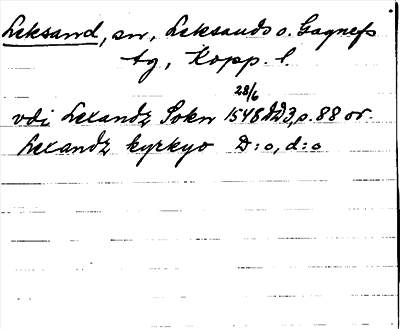 Leksand, sn, Leksands o. Gagnefs
tg, Kopp. l.
28/6
vdi Lexandz Sokn 1548 DD3, s. 88 or.
Lexandz kyrkyo D:o, d:o